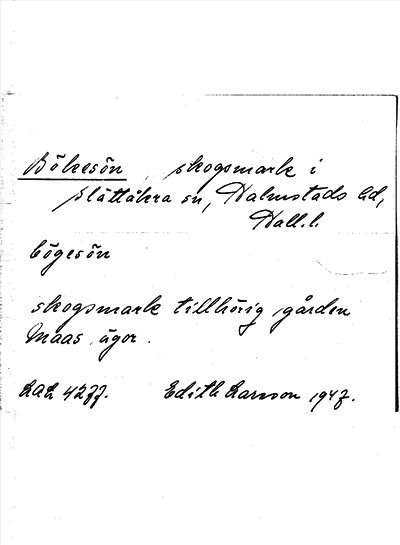 Bökesön, skogsmark i
Slättåkra sn, Halmstads hd,
Hall.l.
bögesön
skogsmark tillhörig gården
Maas ägor.
LAL 4277. Edith Larsson 1947.